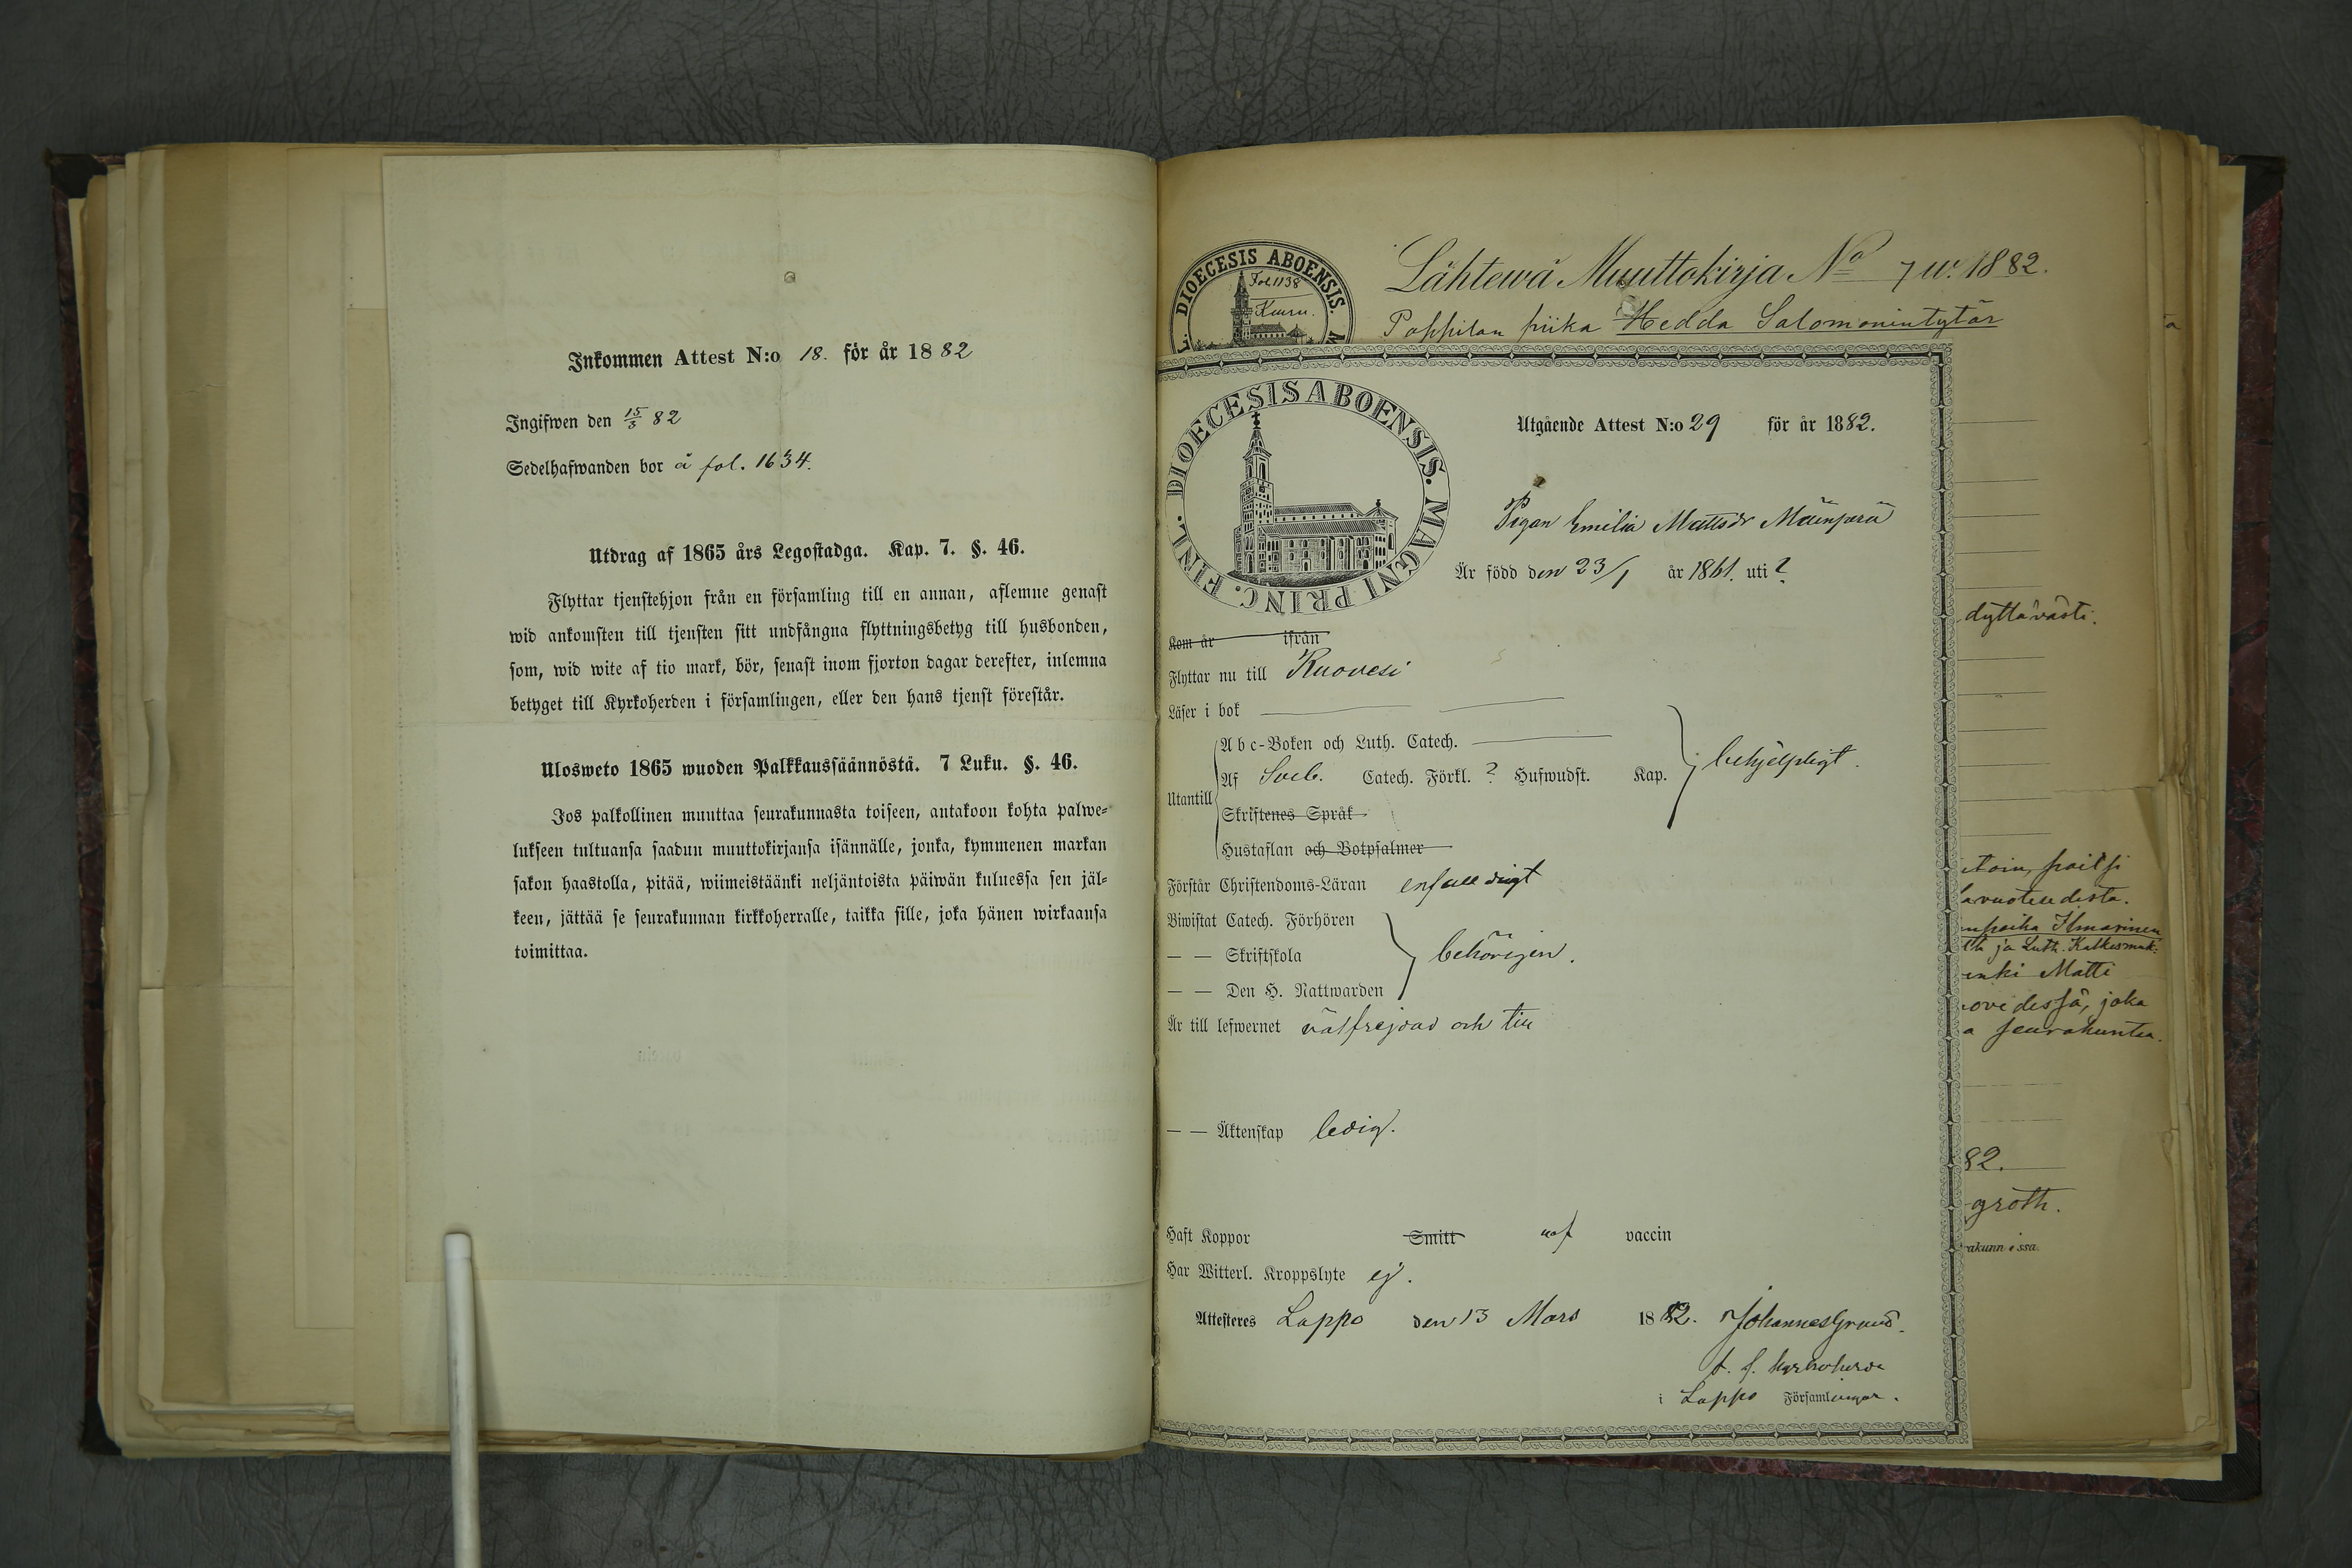 Inkommen Attest N:o 18. för år 1882
Ingifwen den 15/3 82
Sedelhafwanden bor å fol. 1634.
Utdrag af 1865 års Legostadga. Kap. 7. §. 46.
Flyttar tjenstehjon från en församling till en annan, aflemne genast
wid ankomsten till tjensten sitt undfångna flyttningsbetyg till husbonden,
som, wid wite af tio mark, bör, senast inom fjorton dagar derefter, inlemna
betyget till Kyrkoherden i församlingen, eller den hans tjenst förestår.
Ulosweto 1865 wuoden Palkkaussäännöstä. 7 Luku. §. 46.
Jos palkollinen muuttaa seurakunnasta toiseen, antakoon kohta palwe-
lukseen tultuansa saadun muuttokirjansa isännälle, jonka, kymmenen markan
sakon haastolla, pitää, wiimeistäänki neljäntoista päiwän kuluessa sen jäl-
keen, jättää se seurakunnan kirkkoherralle, taikka sille, joka hänen wirkaansa
toimittaa.
DIOECESIS ABOENSIS. M
Fol. 1138
Kuru.
Lähtewä Muuttokirja No 7 w. 1882.
Pappilan piika Hedda Salomonintytär
DIOECESIS ABOENSIS. MAGNI PRINC. FINL.
Utgående Attest N:o 29 för år 1882.
Pigan Emilia Mattsdr Mäenpää
Är född den 23/1 år 1861. uti ?
Kom år ifrån
Flyttar nu till Ruovesi
Läser i bok
Utantill
Abc-Boken och Luth. Catech.
Af Sveb. Catech. Förkl. ? Hufwudst. Kap. behjelpligt.
Skriftenes Språk
Hustaflan och Botpsalmer
Förstår Christendoms-Läran enfalldigt
Biwistat Catech. Förhören
— — Skriftskola behörigen.
— — Den H. Nattwarden
Är till lefwernet välfrejdad och till
— — Äktenskap ledig.
Haft Koppor Smitt vaccin
Har Witterl. Kroppslyte ej.
Attesteras Lappo den 13 Mars 1882. Johannes Grund.
t. f. kyrkoherde
i Lappo Församlingar.
dyttävästi.
paitsi
avuotendista.
npoika Ilmarinen
ja Luth. Katkesmuk:
enki Matti
ovedessä, joka
a seurakuntaa.
82.
groth.
akunnassa.